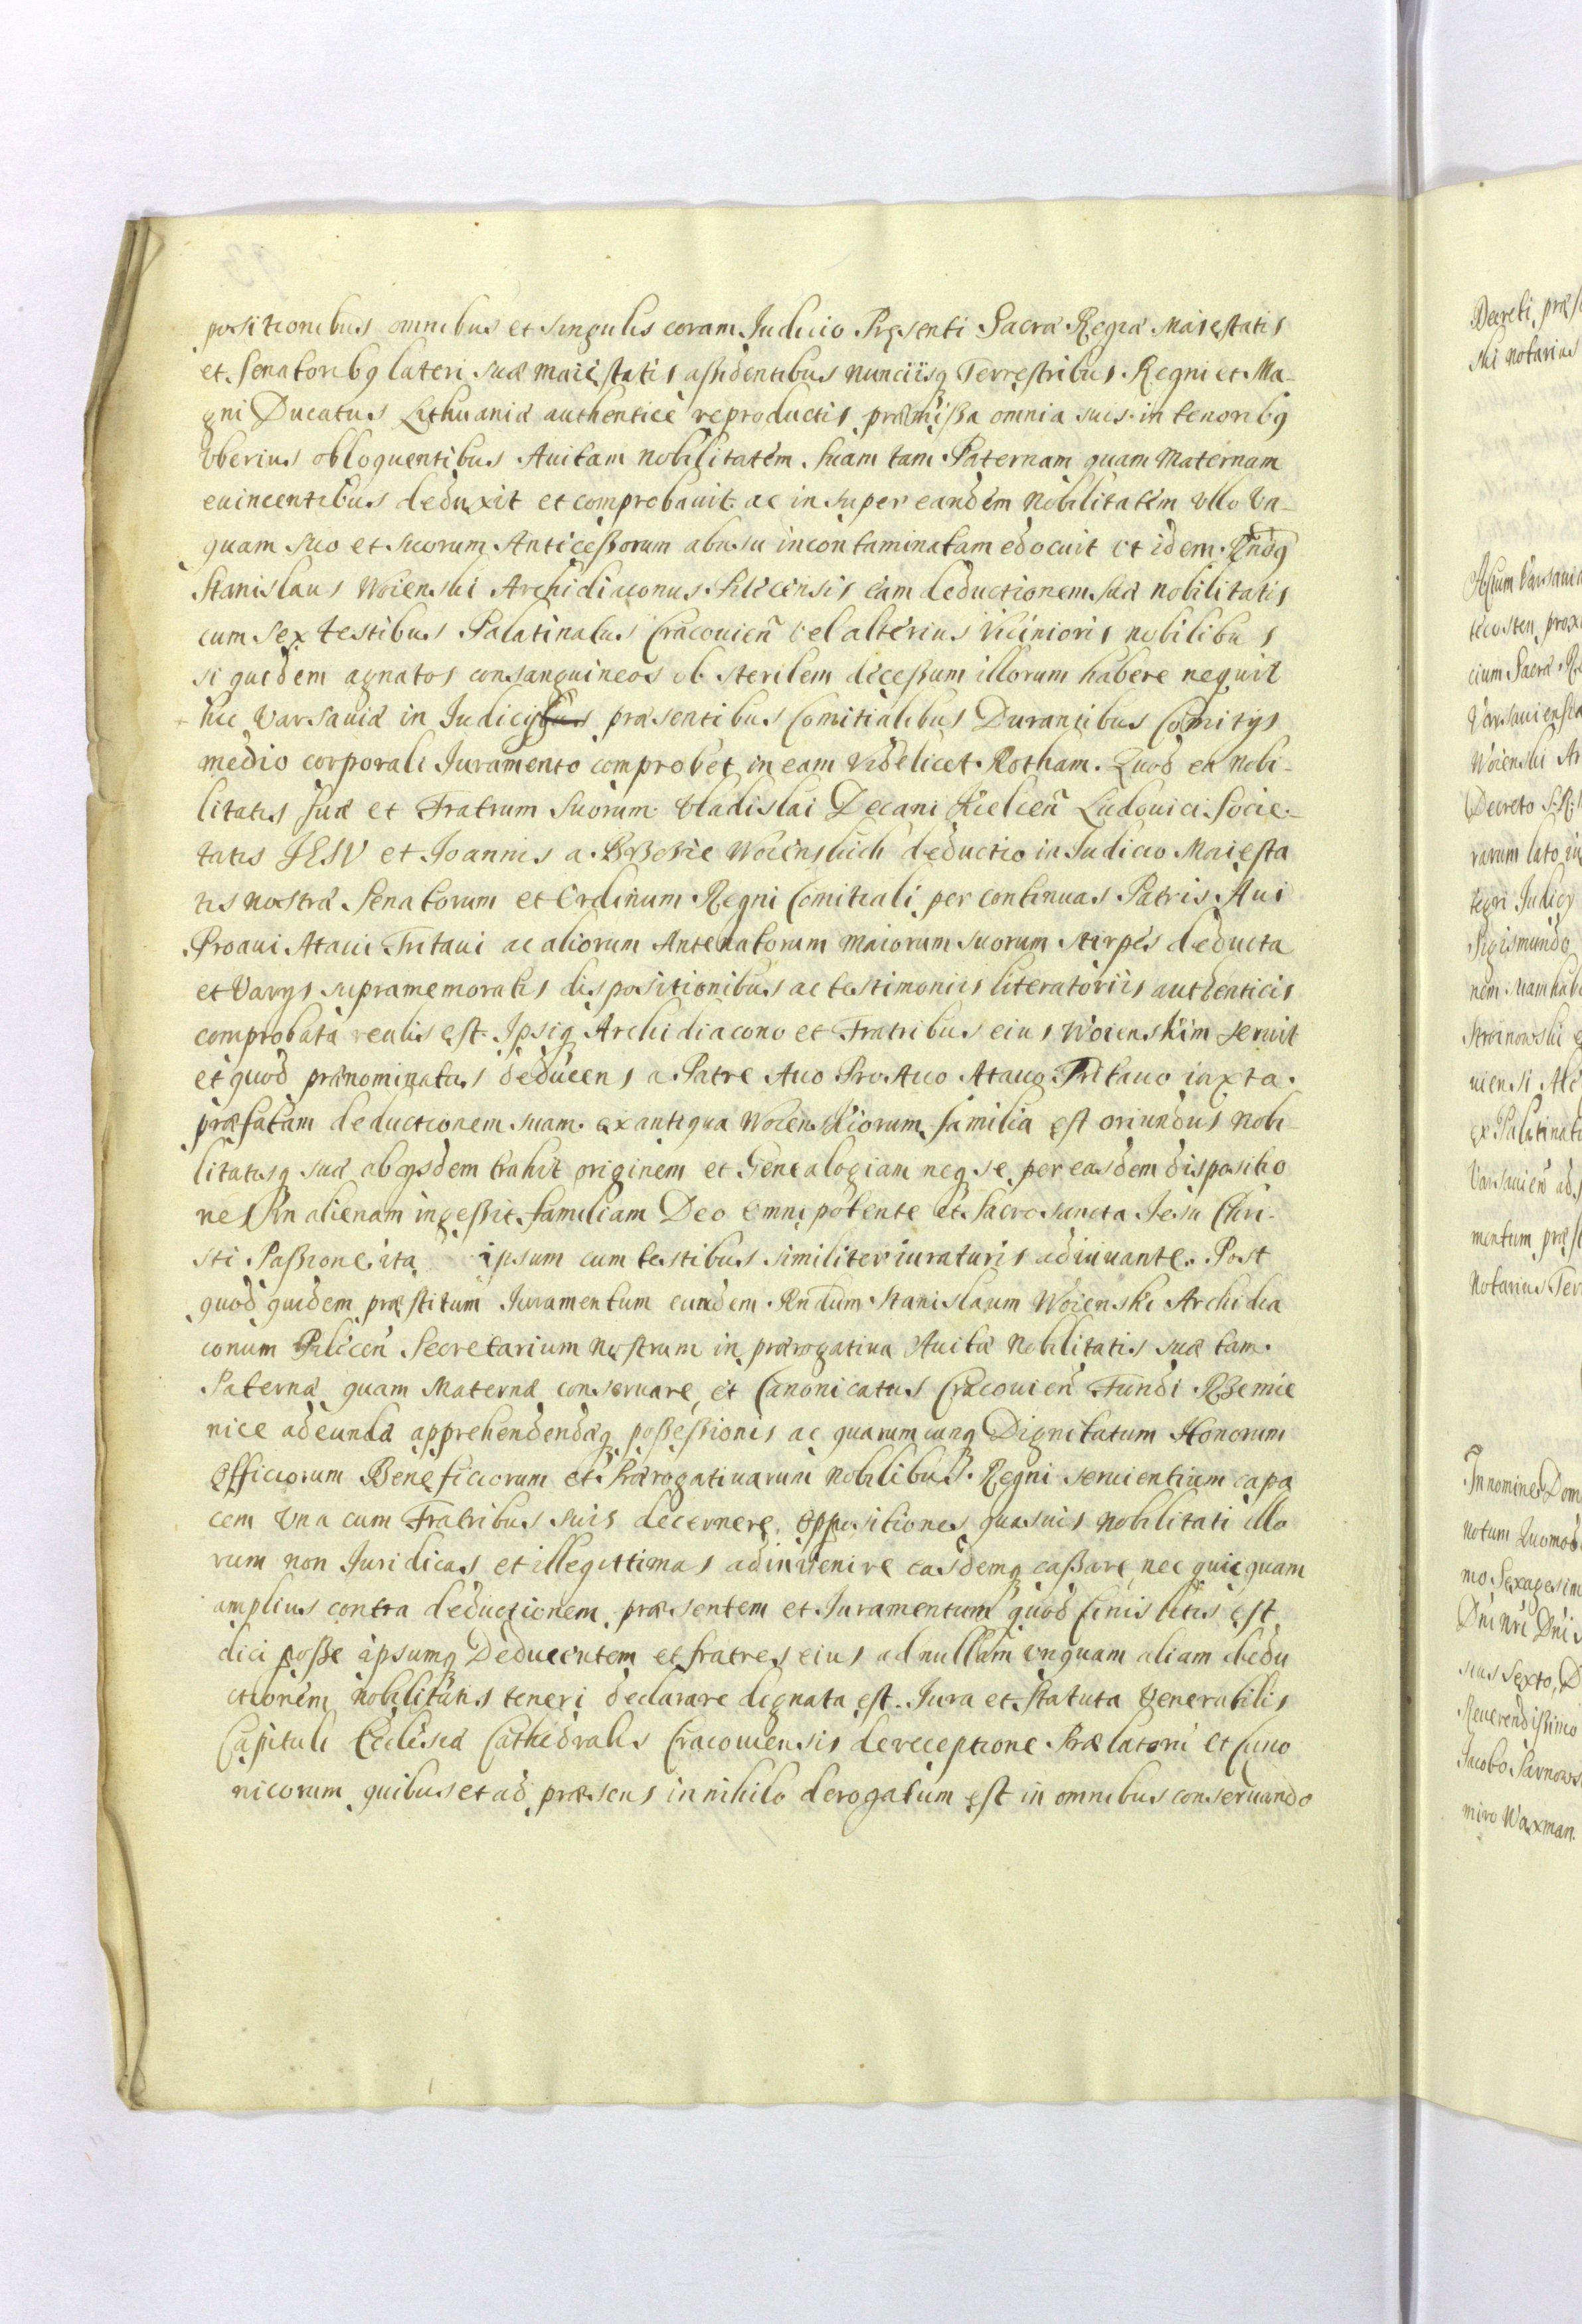 positionibus omnibus et singulis coram Judicio Pręsenti Sacræ Regiæ Maiestatis
et Senatoribq lateri suæ maiestatis assidentibus nunciisq Terrestribus Regni et Ma-
gni Ducatus Lithuaniæ authenticè reproductis præmissa omnia suis in tenoribq
vberius obloquentibus Auitam nobilitatem suam tam Paternam quam Maternam
euincentibus deduxit et comprobauit ac insuper eandem nobilitatem vllo Vn-
quam suo et suorum Anticessorum abusu incontaminatam edocuit vt idem Rndq
Stanislaus Woienski Archidiaconus Pilicensis eam deductionem suæ nobilitatis
cum sex testibus Palatinatus Cracouień vel alterius Vicinioris nobilibus
siquidem agnatos consanguineos ob sterilem dicessum illorum habere nequit
hic Varsauiæ in Judicijs præsentibus Comitialibus Durantibus Comitijs
medio corporali Juramento comprobet in eam videlicet Rotham. Quod ea nobi-
litatis suæ et Fratrum suorum Vladislai Decani Kielceń Ludouici Socie-
tatis JESV et Joannis a Brzezie Woienskich deductio in Judicio Maiesta
tis nostræ Senatorum et Ordinum Regni Comitiali per continuas Patris Aui
Proaui Ataui Tritaui ac aliorum Antenatorum maiorum suorum stirpes deducta
et Varijs supramemoratis dispositionibus ac testimoniis literatoriis authenticis
comprobata realis est Ipsiq Archidiacono et Fratribus eius Woienskim seruit
et quod prænominatus deducens a Patre Auo ProAuo Atauo Tritauo iuxta
præfatam deductionem suam ex antiqua Woienskiorum familia est oriundus nobi-
litatisq suæ ab ijsdem trahit originem et Genealogiam neq se per easdem dispositio
nes in alienam ingessit familiam Deo omnipotente et Sacrosancta Jesu Chri-
sti Passione ita ipsum cum testibus similiter iuraturis adiuuante. Post
quod quidem præstitum Juramentum eundem Rndum Stanislaum Woienski Archidia
conum Pilicen Secretarium nostrum in prærogatiua Auitæ Nobilitatis suæ tam
Paternæ quam Maternæ conseruare, et Canonicatus Cracouień Fundi Rzemie
nice adeundæ apprehendendæq possessionis ac quarumcunq Dignitatum Honorum
Officiorum Beneficiorum et Prærogatiuarum nobilibus Regni seruientium capa
cem Vna cum Fratribus suis decernere, oppositiones quasuis nobilitati illo
rum non Juridicas et illegittimas adinuenire easdemq cassare, nec quicquam
amplius contra deductionem præsentem et Juramentum quod finis litis est
dici posse ipsumq Deducentem et fratres eius ad nullam vnquam aliam dedu
ctionem nobilitatis teneri declarare dignata est. Jura et Statuta Venerabilis
Capituli Ecclesiæ Cathedralis Cracouiensis de receptione Prælatorū et Cano
nicorum quibus et ad præsens in nihilo derogatum est in omnibus conseruando